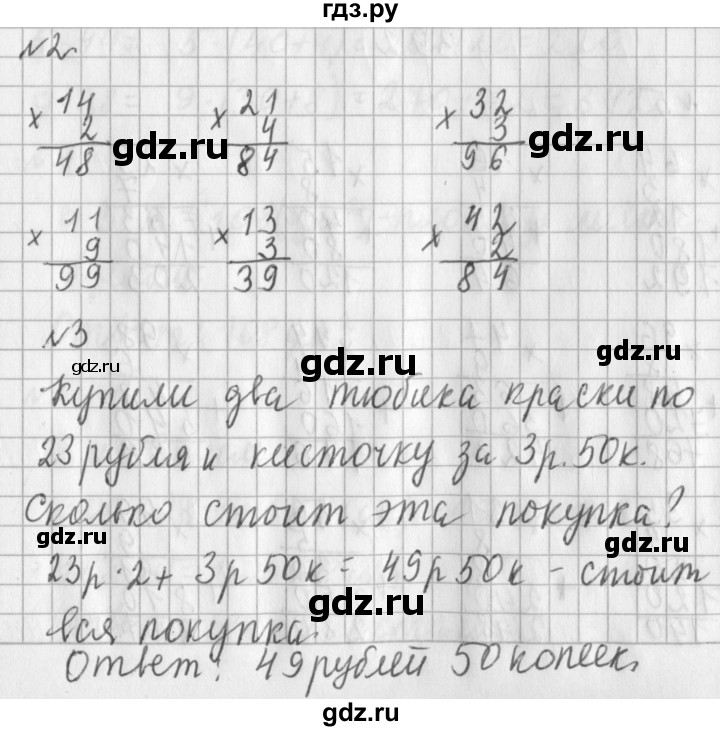 гдз.ру
№2
×14 ×21 ×32
2 4 3
48 84 96
gdz.ru gdz.ru gdz.ru
×11 ×13 ×42
9 3 2
99 39 84
№3
gdz.ru gdz.ru gdz.ru
Купили два тюбика краски по
23 рубля и кисточку за 3р. 50к.
Сколько стоит эта покупка?
gdz.ru gdz.ru
23р·2+ 3р 50к = 49р 50к – стоит
gdz.ru
вся покупка.
Ответ: 49 рублей 50 копеек.
gdz.ru